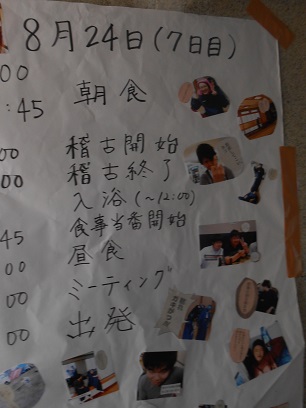 8月24日(7日目)
00
:45 朝食
00 稽古開始
00 稽古終了
入浴(〜12:00)
食事当番開始
45 昼食
00 ミーティング
00 出発